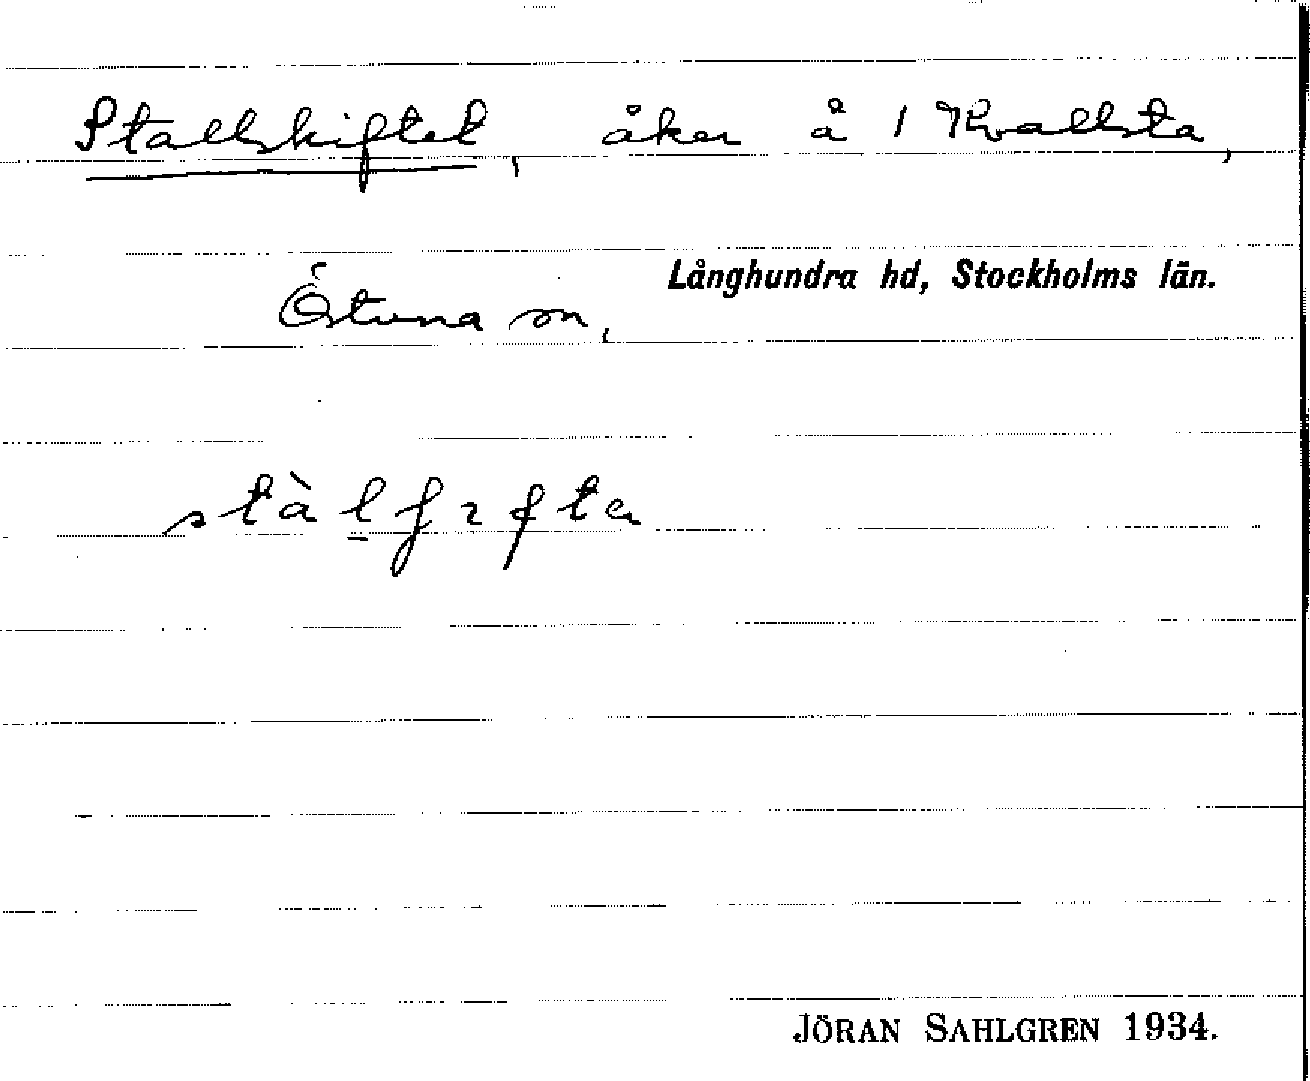 Stallskiftet, åker å 1 Kvallsta,
Långhundra hd, Stockholms län.
Östuna sn,
JÖRAN SAHLGREN 1934.